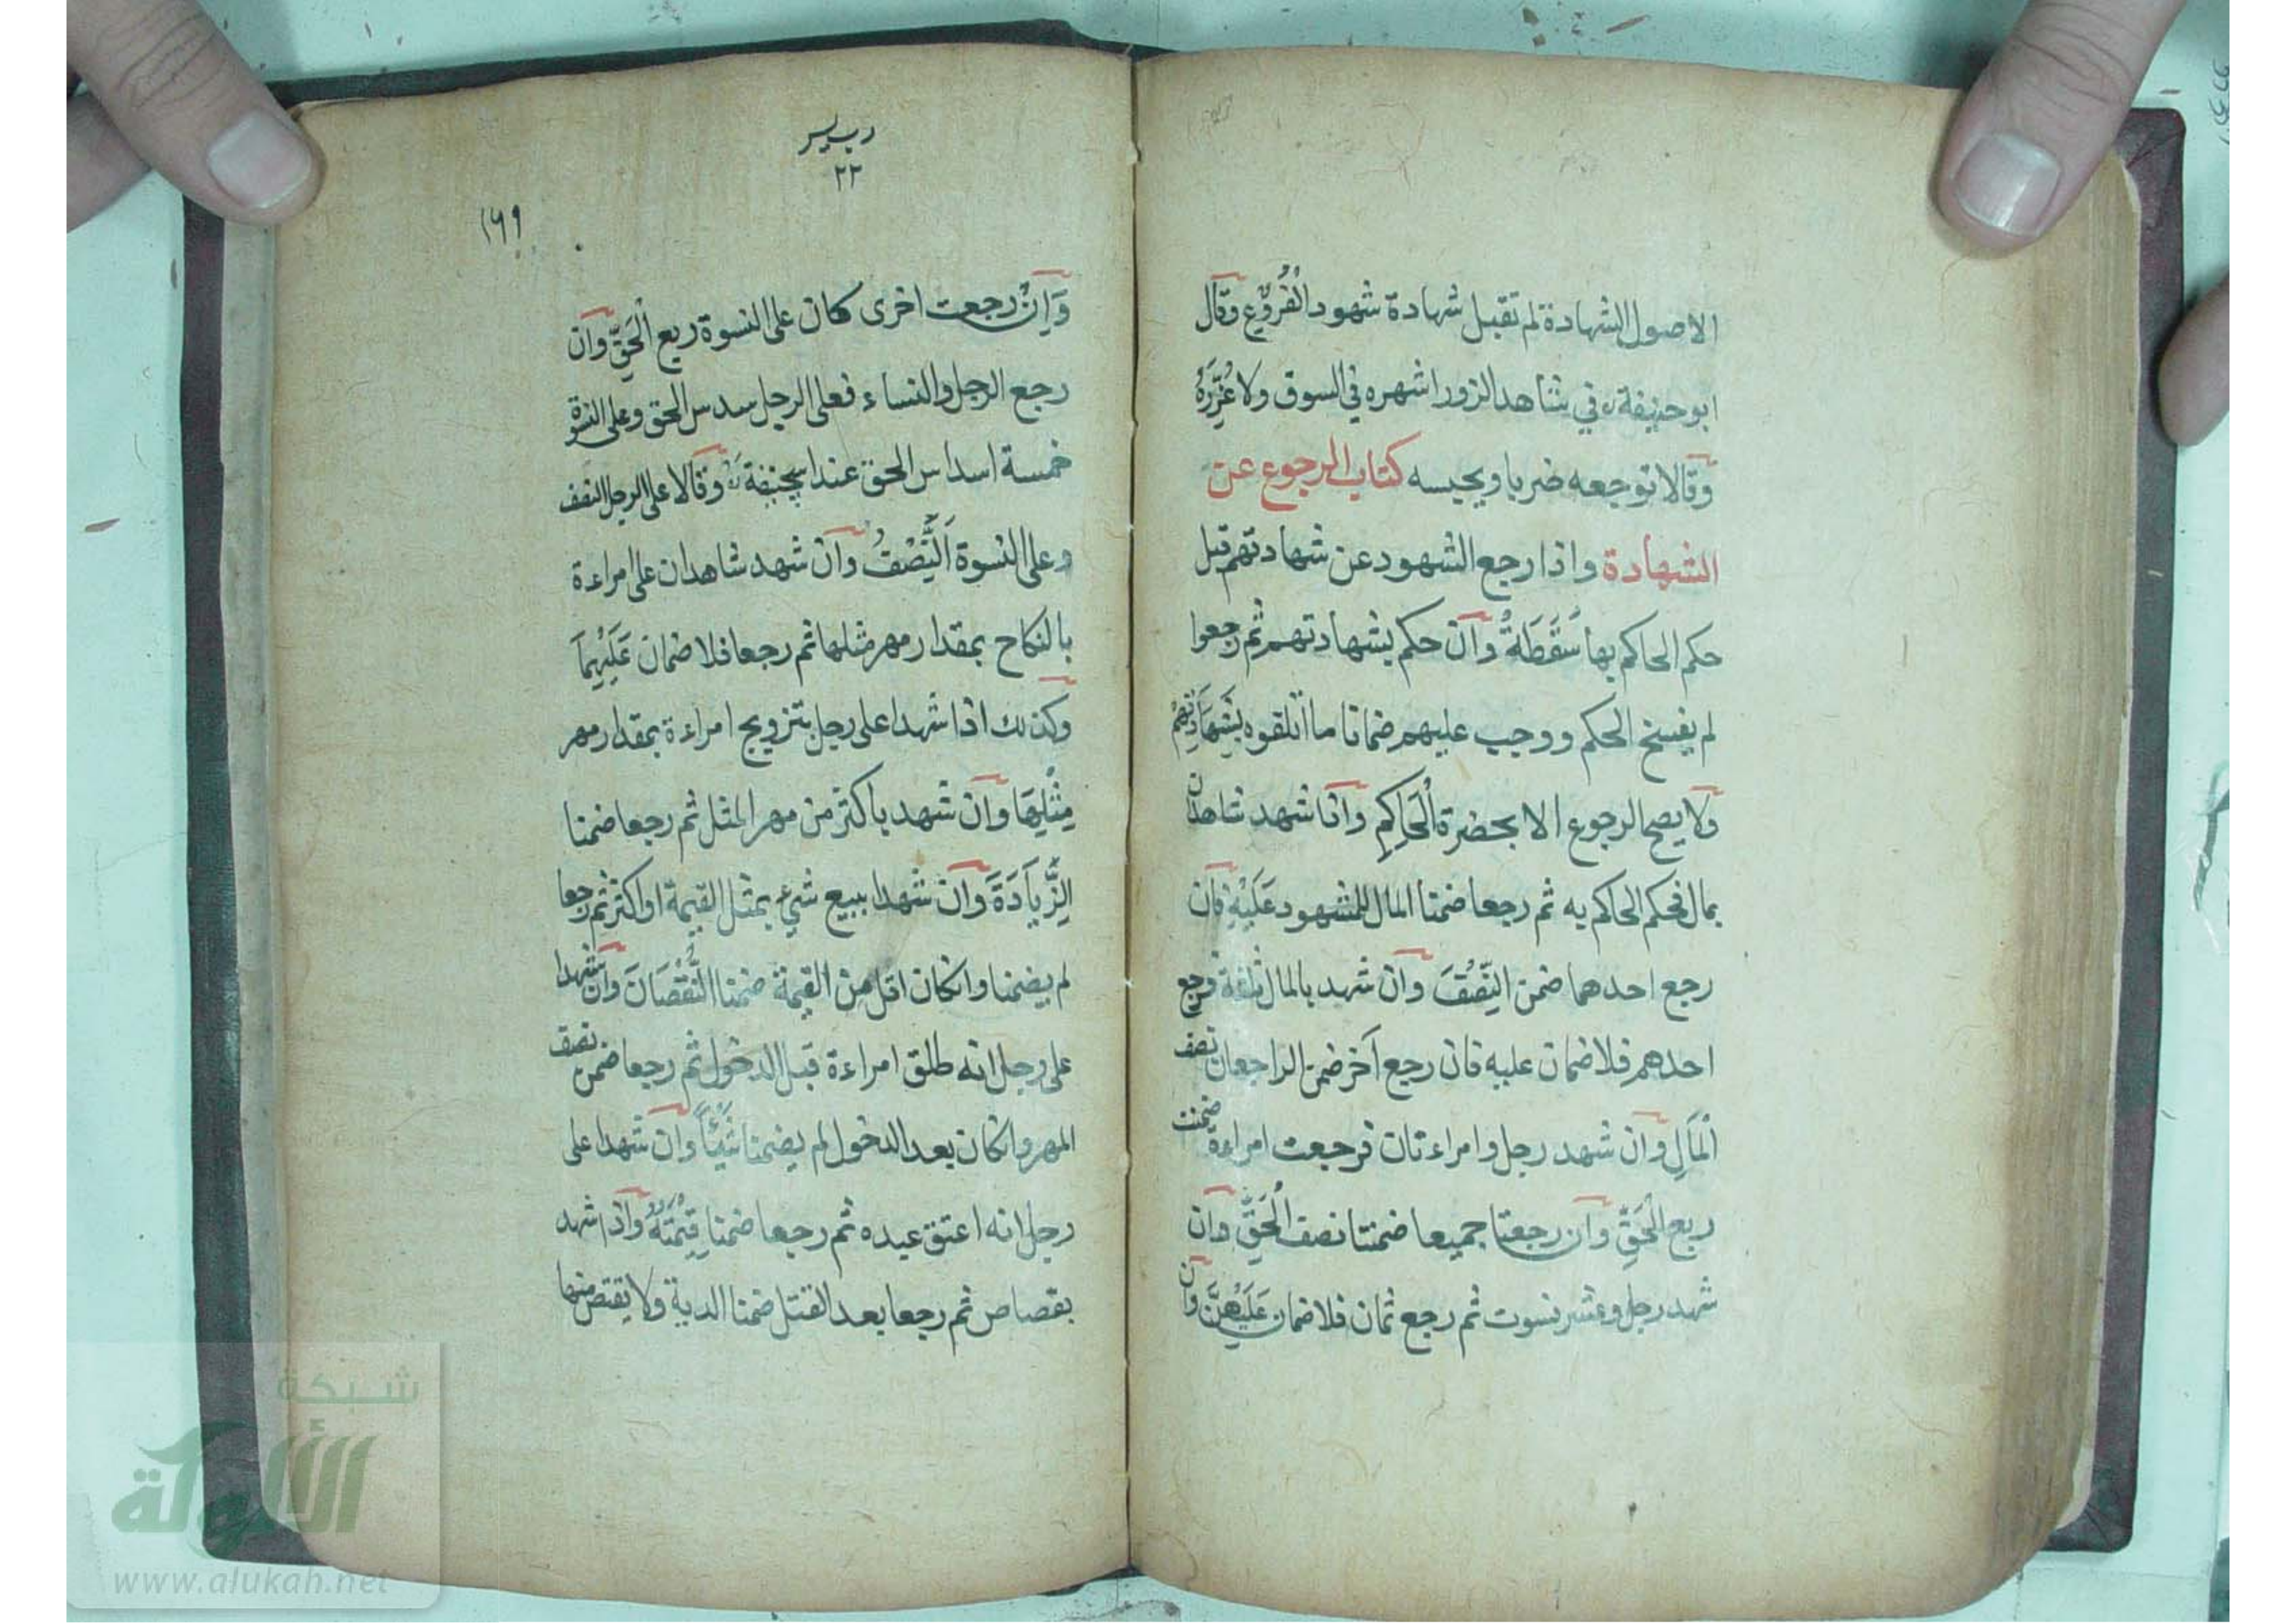 الاصول الشهادة لم تقبل شهادة شهود الفُرُوْعِ وقال
ابو حنيفة ره في شاهد الزور اشهره في السوق ولا عُزِّرَهُ
وقالا توجعه ضربا ويحبسه كتاب الرجوع عن
الشهادة واذا رجع الشهود عن شهادتهم قبل
حكم الحاكم بها سَقَطَةْ وان حكم بشهادتهم ثم رجعوا
لم يفسخ الحكم ووجب عليهم ضمانا ما اتلفوه بِشَهَادَتِهِمْ
ولا يصح الرجوع الا بحضرة الْحَاكِمِ واذا شهد شاهدان
بمال فحكم الحاكم به ثم رجعا ضمنا المال للمشهود عَلَيْهِ فان
رجع احدهما ضمن النِّصْفَ وان شهد بالمال ثلثة فرجع
احدهم فلا ضمان عليه فان رجع آخر ضمن الراجعان نصف
الْمَالِ وان شهد رجل وامراءتان فرجعت امراءة ضمنت
ربع الْحَقِّ وان رجعتا جميعا ضمنتا نصف الْحَقِّ وان
شهد رجل وعشر نسوت ثم رجع ثمان فلا ضمان عَلَيْهِنَّ وان
٢٢
١٦٩
وَاِنْ رجعت اخرى كان على النسوة ربع الْحَقِّ وان
رجع الرجل والنساء فعلى الرجل سدس الحق وعلى النسوة
خمسة اسداس الحق عند ابيحنيفة ره وقالا على الرجل النصف
وعلى النسوة اَلنِّصْفُ وان شهد شاهدان على امراءة
بالنكاح بمقدار مهر مثلها ثم رجعا فلا ضمان عَلَيْهِمَا
وكذلك اذا شهدا على رجل بتزويج امراءة بمقدار مهر
مِثْلِهَا وان شهد باكثر من مهر المثل ثم رجعا ضمنا
الزِّيَادَةَ وان شهدا ببيع شيء بمثل القيمة او اكثر ثم رجعا
لم يضمنا وانكان اقل من القيمة ضمنا النُّقْصَانَ وان شهدا
على رجل انه طلق امراءة قبل الدخول ثم رجعا ضمن نصف
المهر وانكان بعد الدخول لم يضمنا شَيْئًا وان شهدا على
رجل انه اعتق عبده ثم رجعا ضمنا قِيْمَتَهُ واذا شهد
بقصاص ثم رجعا بعد القتل ضمنا الدية ولا يقتص منها
شبكة
الألوكة
www.alukah.net